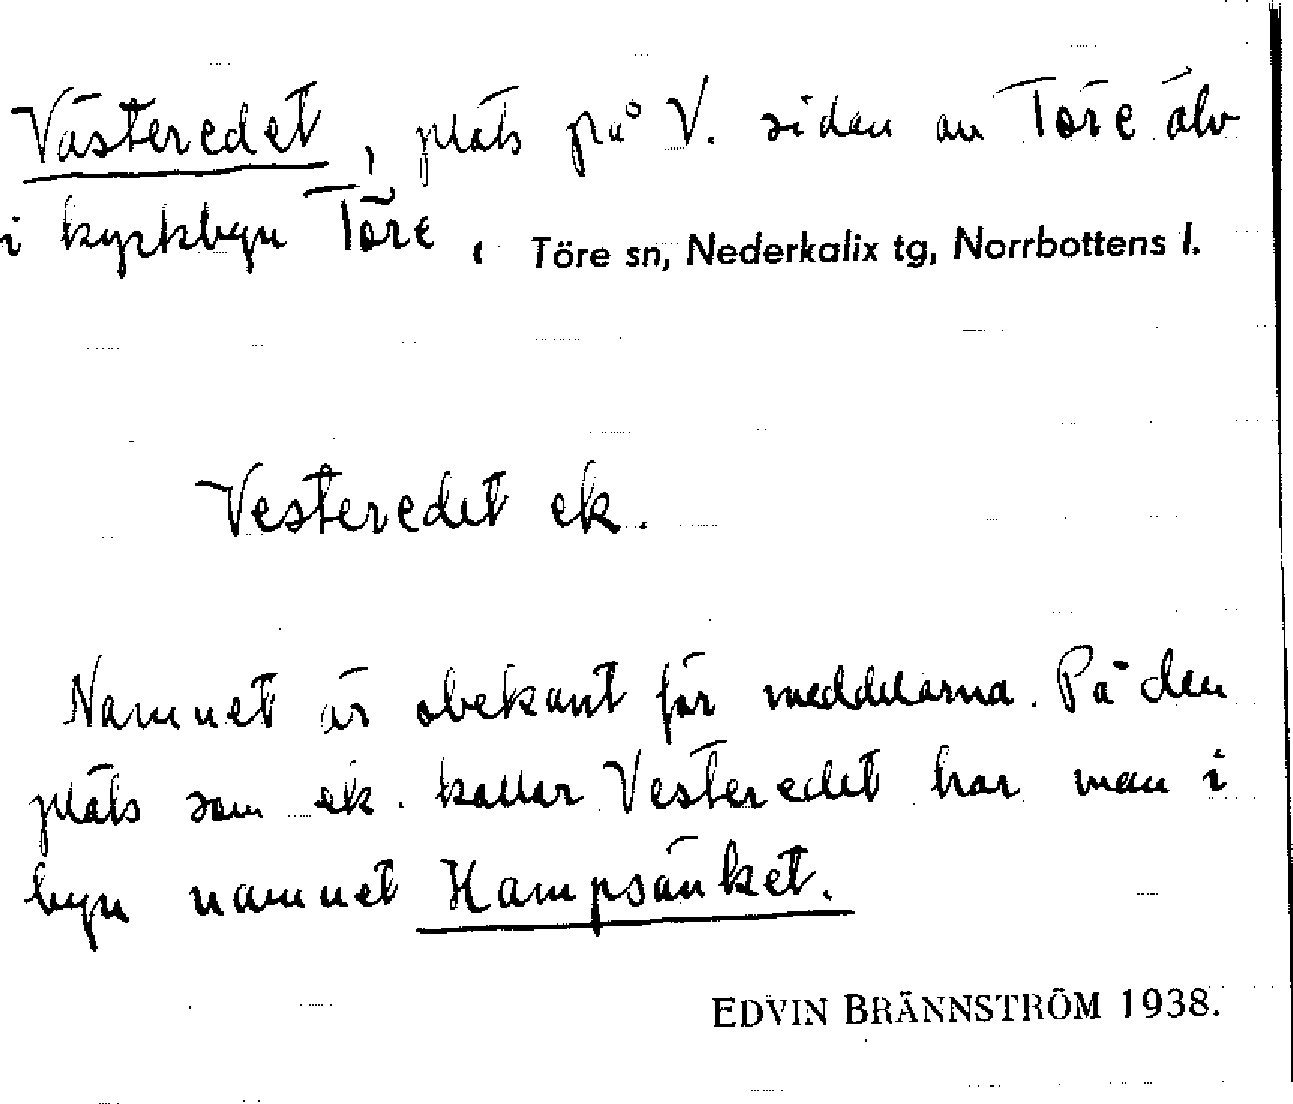 Västeredet, plats på V. sidan av Töre älv
i kyrkbyn Töre, Töre sn, Nederkalix tg, Norrbottens l.
Vesteredet ek.
Namnet är obekant för meddelarna. På den
plats som ek. kallar Vesteredet har man i
byn namnet Hampsänket.
EDVIN BRÄNNSTRÖM 1938.